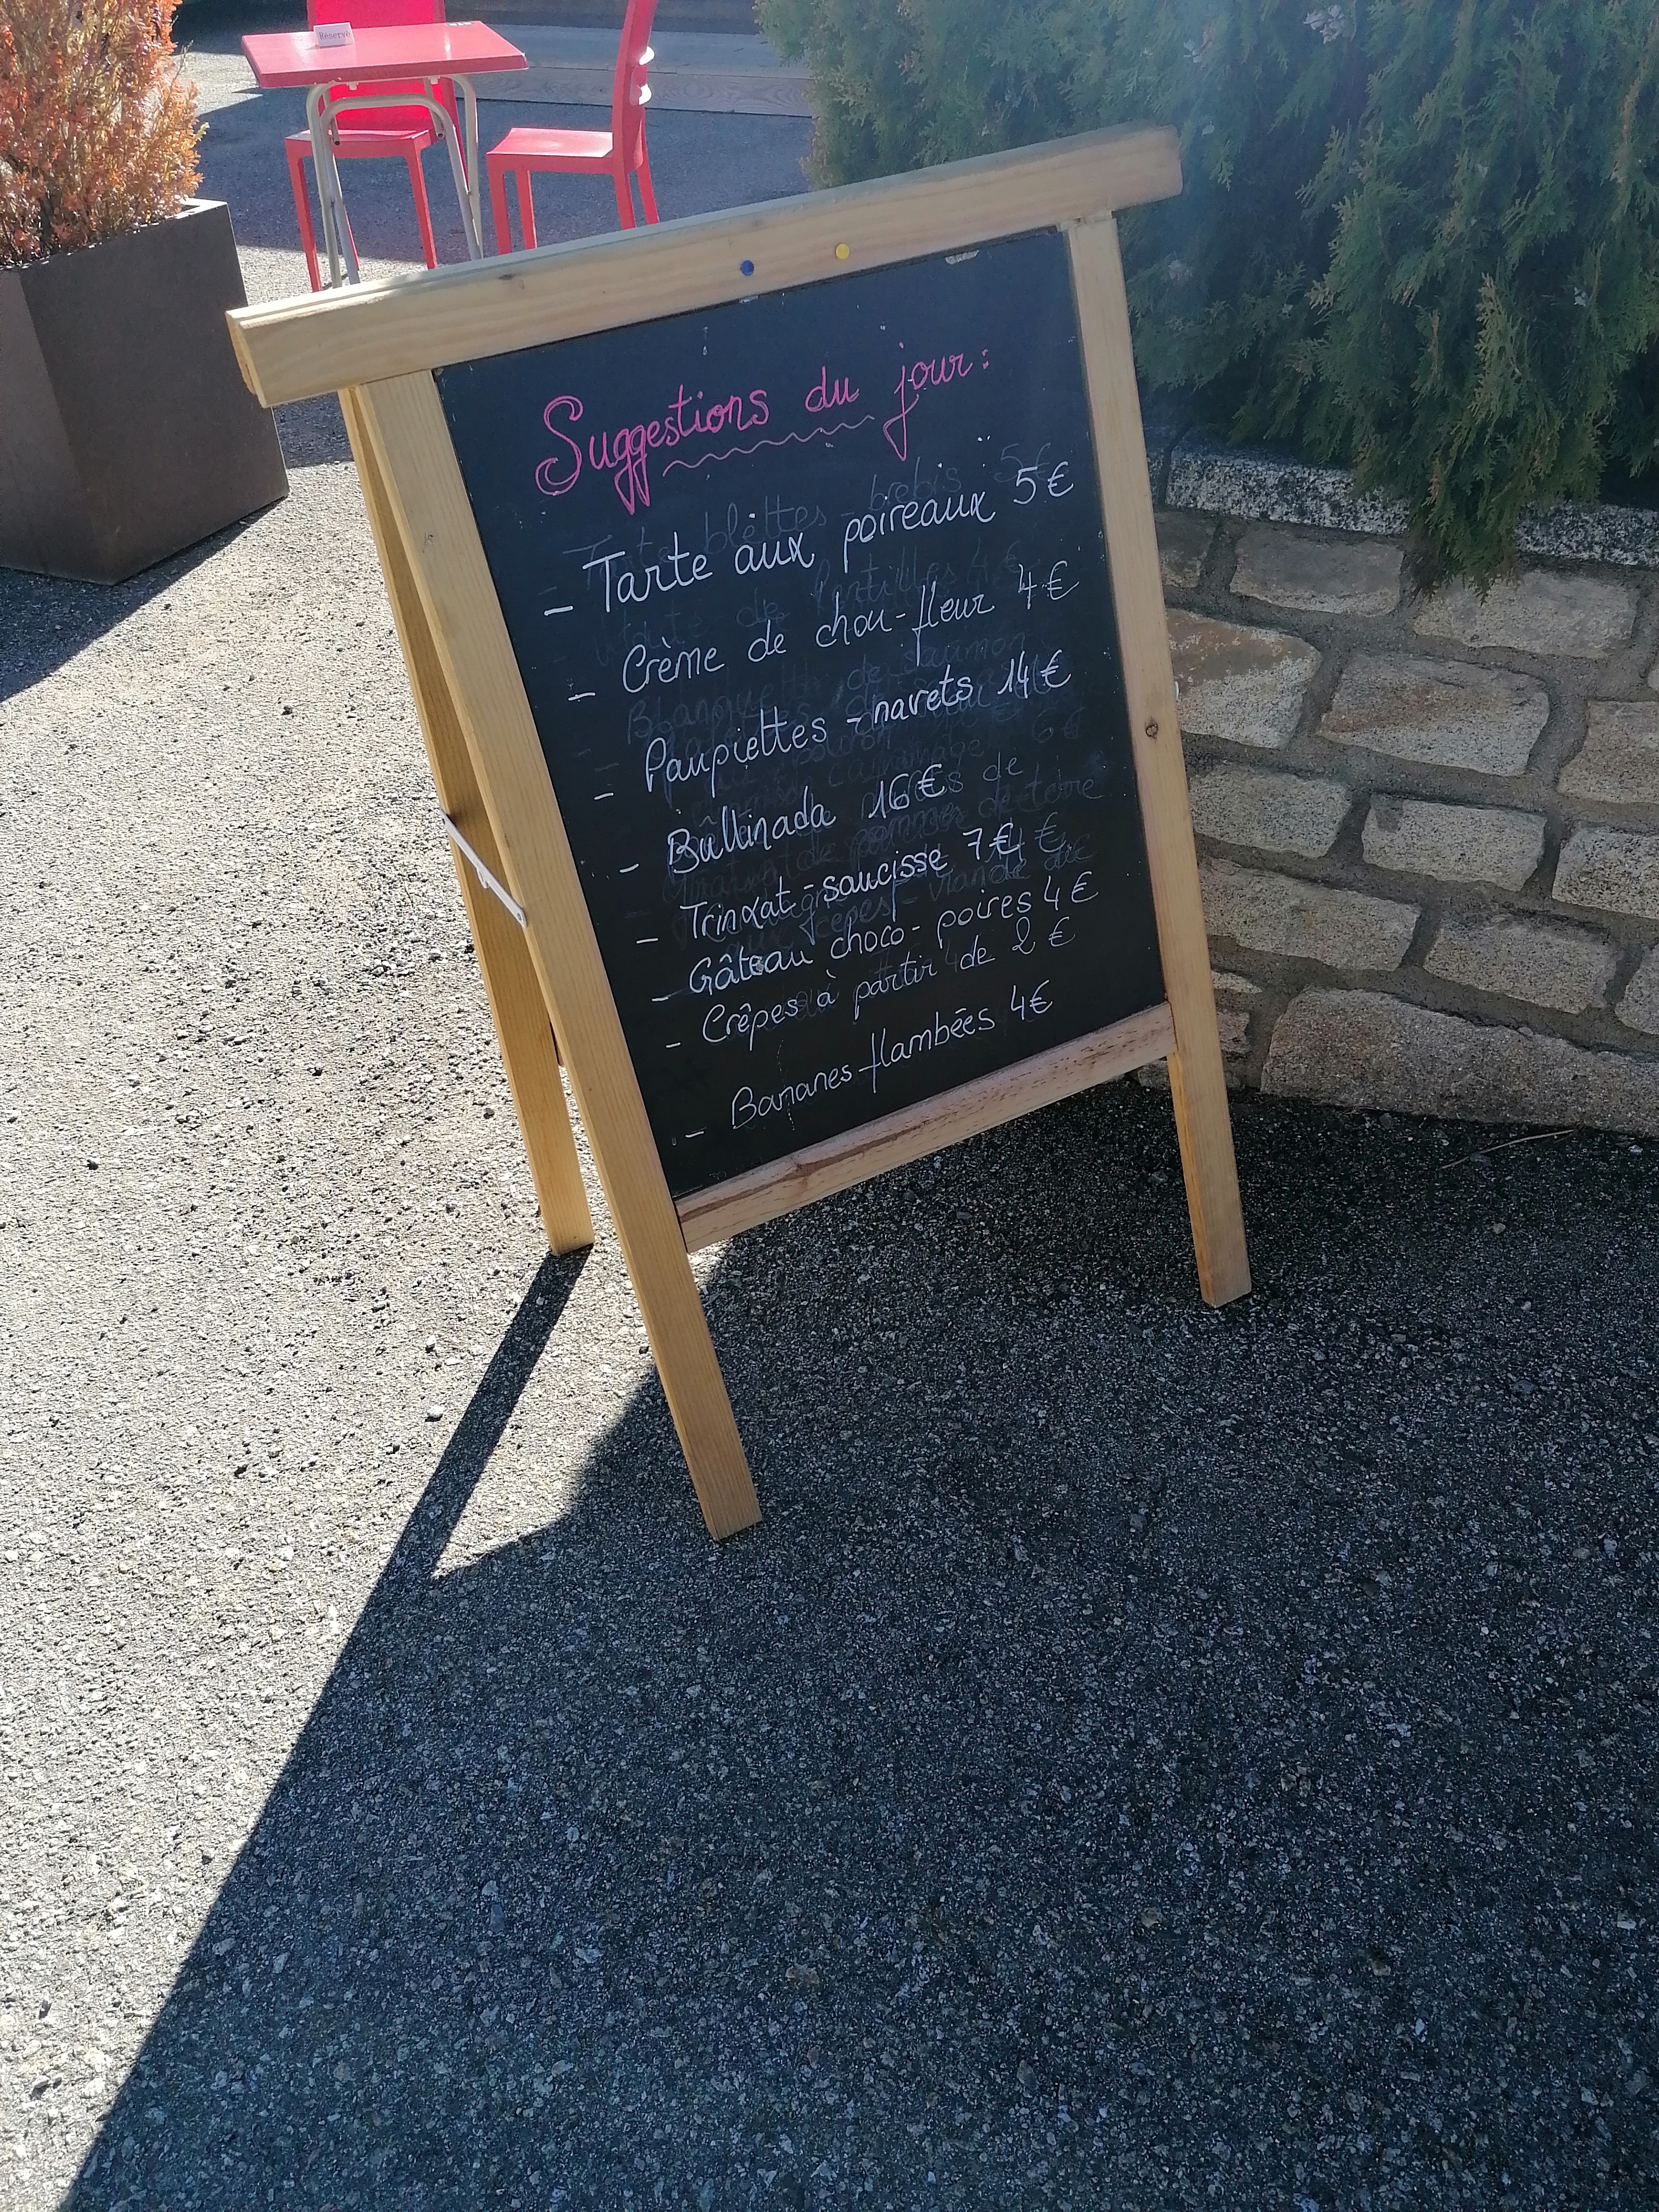 Réservé
Suggestions du jour :
- Tarte aux poireaux 5€
- Crème de chou-fleur 4€
- Paupiettes - navets 14€
- Bullinada 16€
- Trinxat - saucisse 7€
- Gâteau choco - poires 4€
- Crêpes à partir de 2€
- Bananes flambées 4€